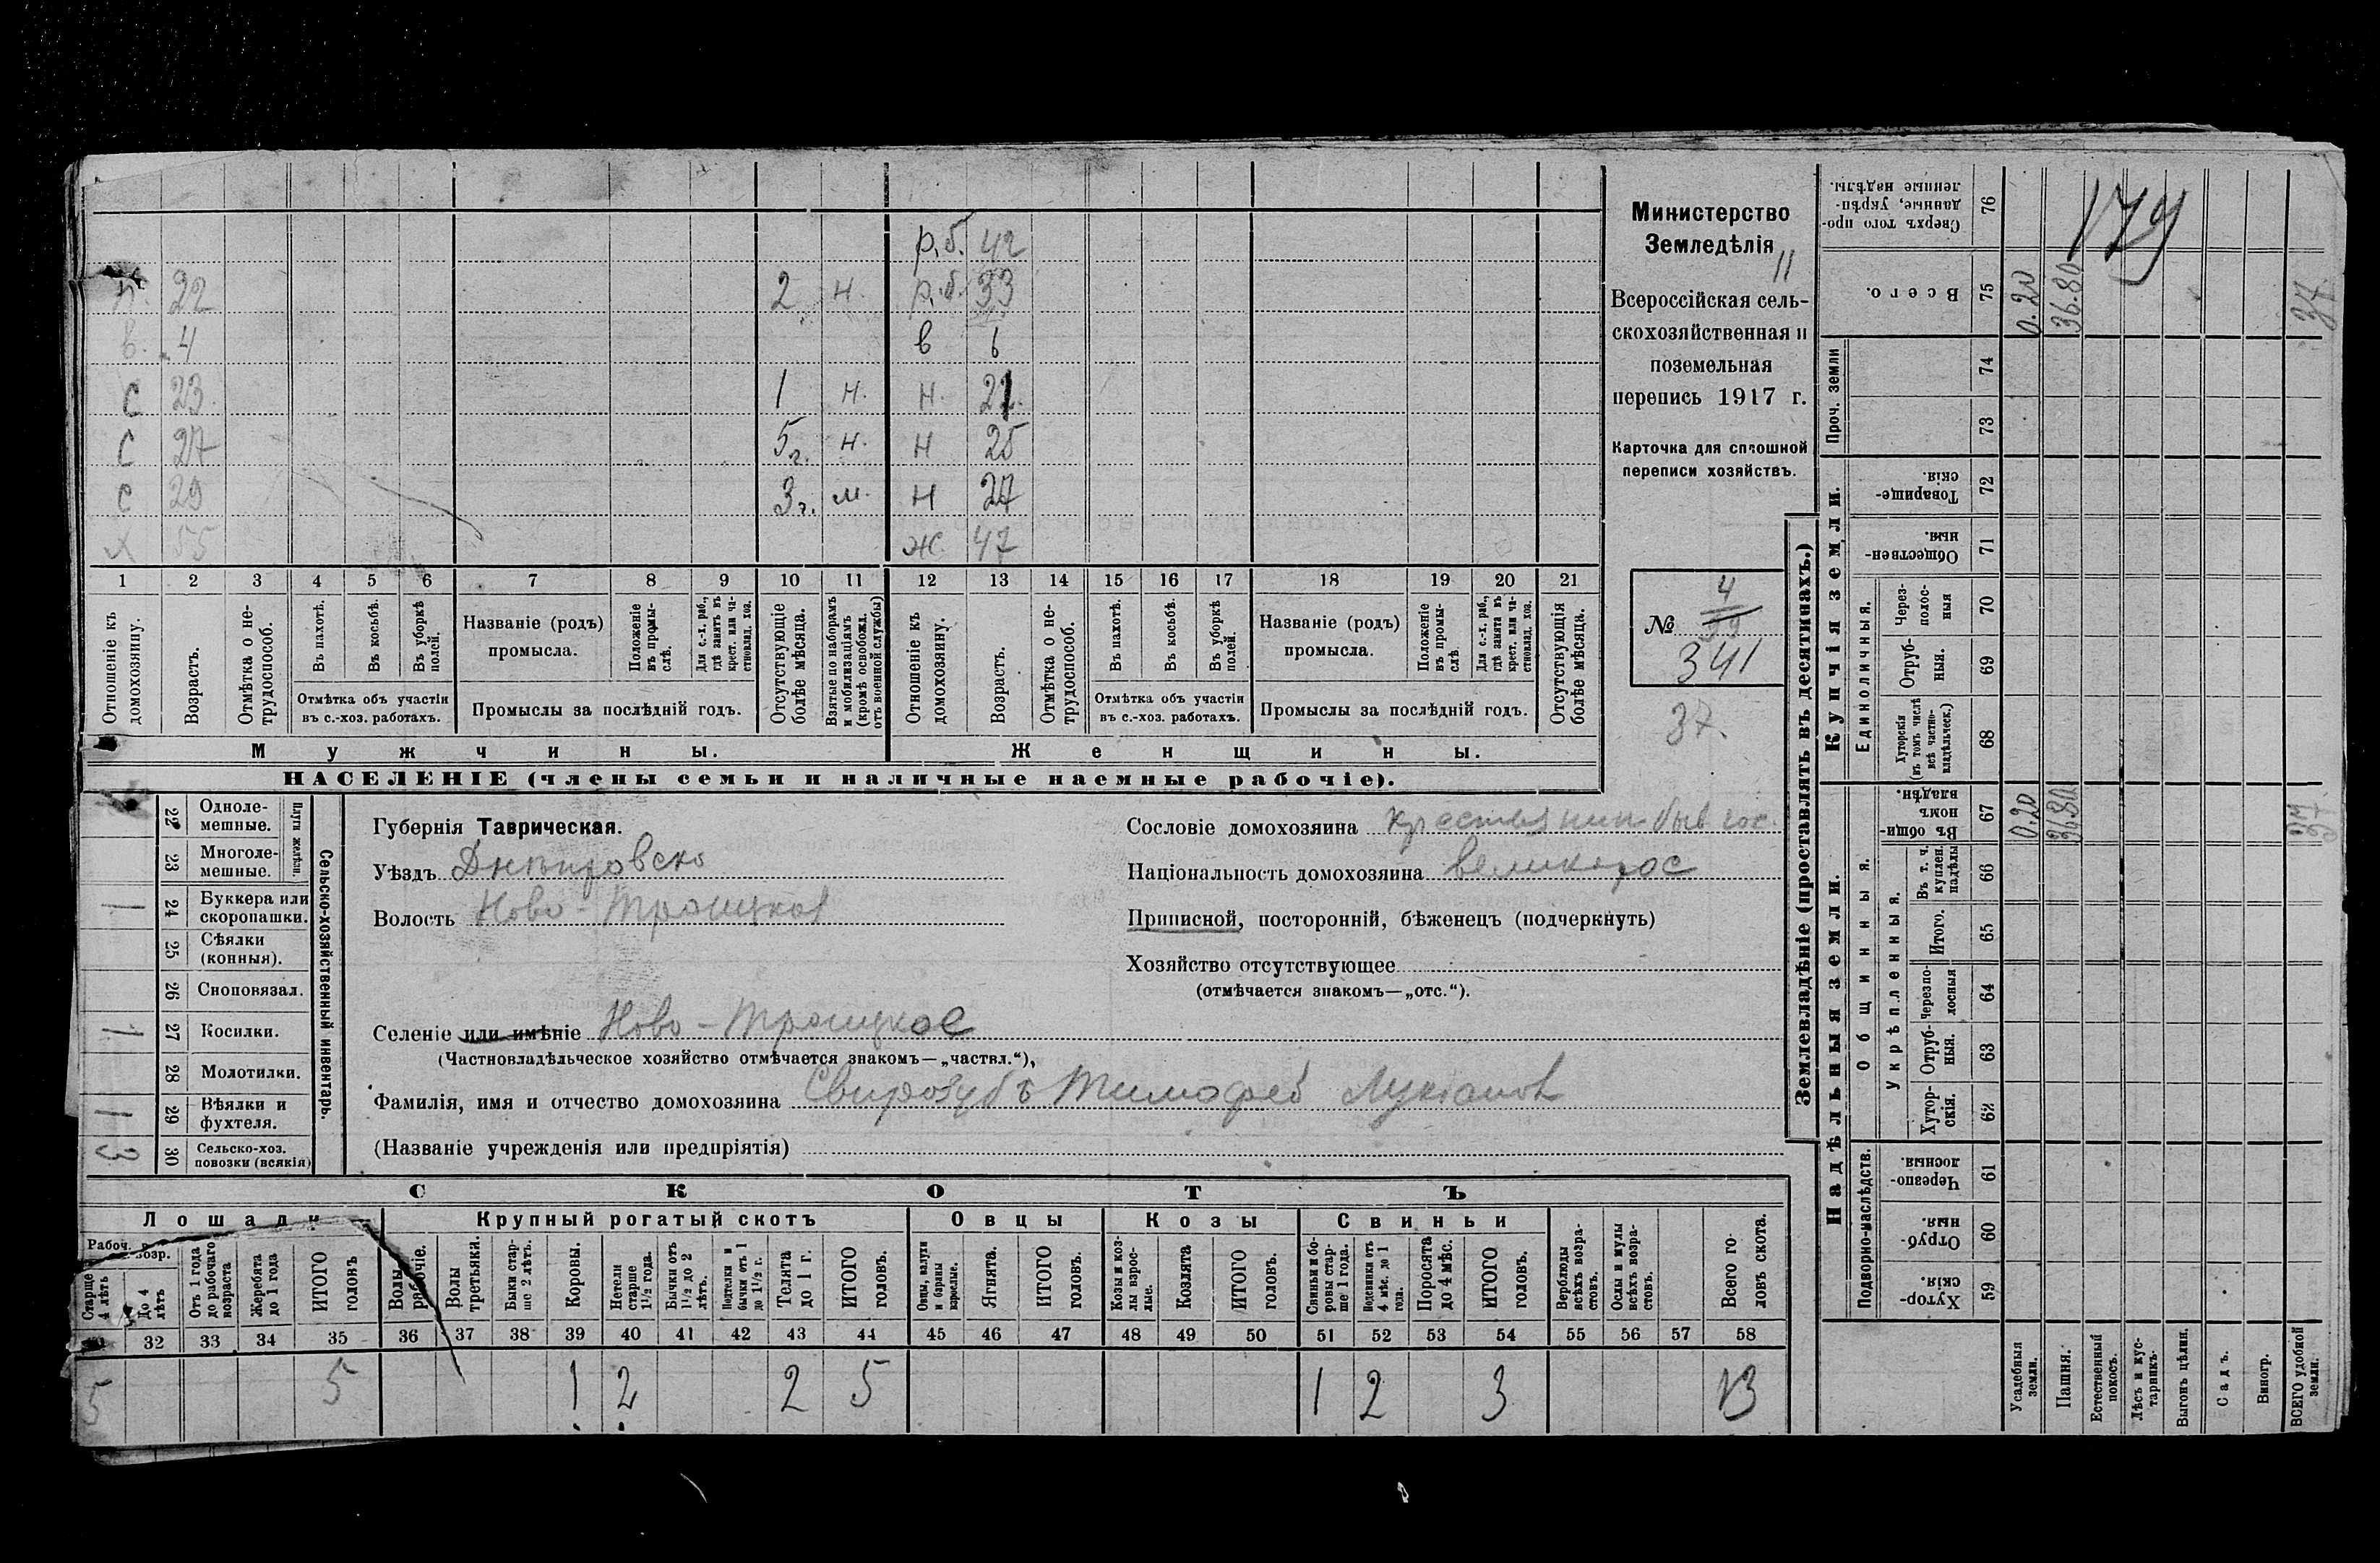 р.б. 42
п. 22 2 н. р.б. 33
в. 4 в 6
с 23 1 н. н. 21.
с 27 5 г. н. н 25
с 29 3 г. м. н 27
х 55 ж. 47
1 2 3 4 5 6 7 8 9 10 11 12 13 14 15 16 17 18 19 20 21
Отношеніе къ домохозяину.
Возрастъ.
Отмѣтка о нетрудоспособ.
Въ пахотѣ.
Въ косьбѣ.
Въ уборкѣ полей.
Отмѣтка объ участіи
въ с.-хоз. работахъ.
Названіе (родъ)
промысла.
Положеніе въ промыслѣ.
Для с.-х. раб., гдѣ занятъ въ крест. или частновлад. хоз.
Промыслы за послѣдній годъ.
Отсутствующіе болѣе мѣсяца.
Взятые по наборамъ и мобилизаціямъ (кромѣ освобожд. отъ военной службы)
Отношеніе къ домохозяину.
Возрастъ.
Отмѣтка о нетрудоспособ.
Въ пахотѣ.
Въ косьбѣ.
Въ уборкѣ полей.
Отмѣтка объ участіи
въ с.-хоз. работахъ.
Названіе (родъ)
промысла.
Положеніе въ промыслѣ.
Для с.-х. раб., гдѣ занята въ крест. или частновлад. хоз.
Промыслы за послѣдній годъ.
Отсутствующія болѣе мѣсяца.
Мужчины.
Женщины.
НАСЕЛЕНІЕ (члены семьи и наличные наемные рабочіе).
Министерство
Земледѣлія
11
Всероссійская сель-
скохозяйственная и
поземельная
перепись 1917 г.
Карточка для сплошной
переписи хозяйствъ.
№ 4
341
37.
Сельско-хозяйственный инвентарь.
Плуги желѣзн.
22 Одноле-
мешные.
23 Многоле-
мешные.
1 24 Буккера или
скоропашки.
25 Сѣялки
(конныя).
26 Сноповязал.
1 27 Косилки.
28 Молотилки.
1 29 Вѣялки и
фухтеля.
3 30 Сельско-хоз.
повозки (всякія)
Губернія Таврическая.
Уѣздъ Днѣпровско
Волость Ново-Троицкая
Селеніе или имѣніе Ново-Троицкое
(Частновладѣльческое хозяйство отмѣчается знакомъ—„частвл.“),
Фамилія, имя и отчество домохозяина Свирозубъ Тимофей Лукіанов
(Названіе учрежденія или предпріятія)
Сословіе домохозяина крестьянин быв гос.
Національность домохозяина великорос
Приписной, посторонній, бѣженецъ (подчеркнуть)
Хозяйство отсутствующее
(отмѣчается знакомъ—„отс.“).
СКОТЪ
Лошади
Крупный рогатый скотъ
Овцы
Козы
Свиньи
Рабоч. возр.
Старше 4 лѣтъ
До 4 лѣтъ
Отъ 1 года до рабочаго возраста
Жеребята до 1 года
ИТОГО головъ
Волы рабочіе.
Волы третьяки.
Быки старше 2 лѣтъ.
Коровы.
Нетели старше 1½ года.
Бычки отъ 1½ до 2 лѣтъ.
Подтелки и бычки отъ 1 до 1½ г.
Телята до 1 г.
ИТОГО головъ.
Овцы, валухи и бараны взрослые.
Ягнята.
ИТОГО головъ.
Козы и козлы взрослые.
Козлята
ИТОГО головъ.
Свиньи и боровы старше 1 года.
Подсвинки отъ 4 мѣс. до 1 года.
Поросята до 4 мѣс.
ИТОГО головъ.
Верблюды всѣхъ возрастовъ.
Ослы и мулы всѣхъ возрастовъ.
Всего головъ скота.
32 33 34 35 36 37 38 39 40 41 42 43 44 45 46 47 48 49 50 51 52 53 54 55 56 57 58
5 5 1 2 2 5 1 2 3 13
Землевладѣніе (проставлять въ десятинахъ.)
Надѣльныя земли.
Купчія земли.
Проч. земли
Подворно-наслѣдств.
Общинныя.
Укрѣпленныя.
Единоличныя.
Сверхъ того проданные, укрѣпленные надѣлы.
76
Всего.
75
74
73
Товарищескія
72
Общественныя.
71
Черезполосныя
70
Отрубныя.
69
Хуторскія (въ томъ числѣ всѣ частновладѣльческ.)
68
Въ общинномъ владѣн.
67
Въ т. ч. куплен. надѣлы
66
Итого.
65
Черезполосныя
64
Отрубныя.
63
Хуторскія.
62
Черезполосныя.
61
Отрубныя.
60
Хуторскія.
59
Усадебныя земли.
0.20 0.20
Пашня.
36.80 36.80
Естественный покосъ.
Лѣсъ и кустарникъ.
Выгонъ цѣлин.
Садъ.
Виногр.
ВСЕГО удобной земли.
37 37
179